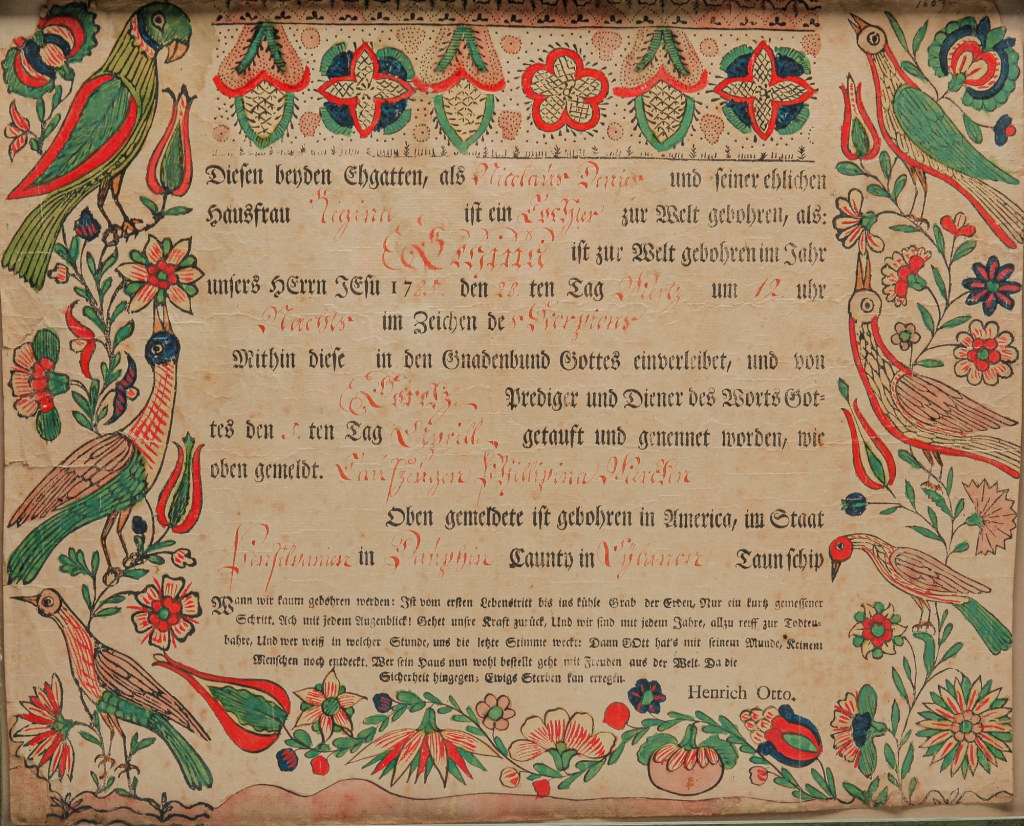 Diesen beyden Ehgatten, als Nicolaus und seiner ehlichen
Hausfrau Regina ist ein Tochter zur Welt gebohren, als:
ist zur Welt gebohren im Jahr
unsers HErrn JEsu 17 den ten Tag Mertz um 12 uhr
Nachts im Zeichen des Scorpions
Mithin diese in den Gnadenbund Gottes einverleibet, und von
Prediger und Diener des Worts Got-
tes den ten Tag Aprill getauft und genennet worden, wie
oben gemeldt. Taufzeugen Phillipina
Oben gemeldete ist gebohren in America, im Staat
Pensilvanien in Dauphin Caunty in Taunschip
Wann wir kaum gebohren werden: Ist vom ersten Lebenstritt bis ins kühle Grab der Erden, Nur ein kurtz gemessener
Schritt. Ach mit jedem Augenblick! Gehet unsre Kraft zurück, Und wir sind mit jedem Jahre, allzu reiff zur Todten-
bahre, Und wer weiß in welcher Stunde, uns die letzte Stimme weckt: Dann GOtt hat's mit seinem Munde, Keinem
Menschen noch entdeckt. Wer sein Haus nun wohl bestellt geht mit Freuden aus der Welt. Da die
Sicherheit hingegen; Ewigs Sterben kan erregen.
Henrich Otto.